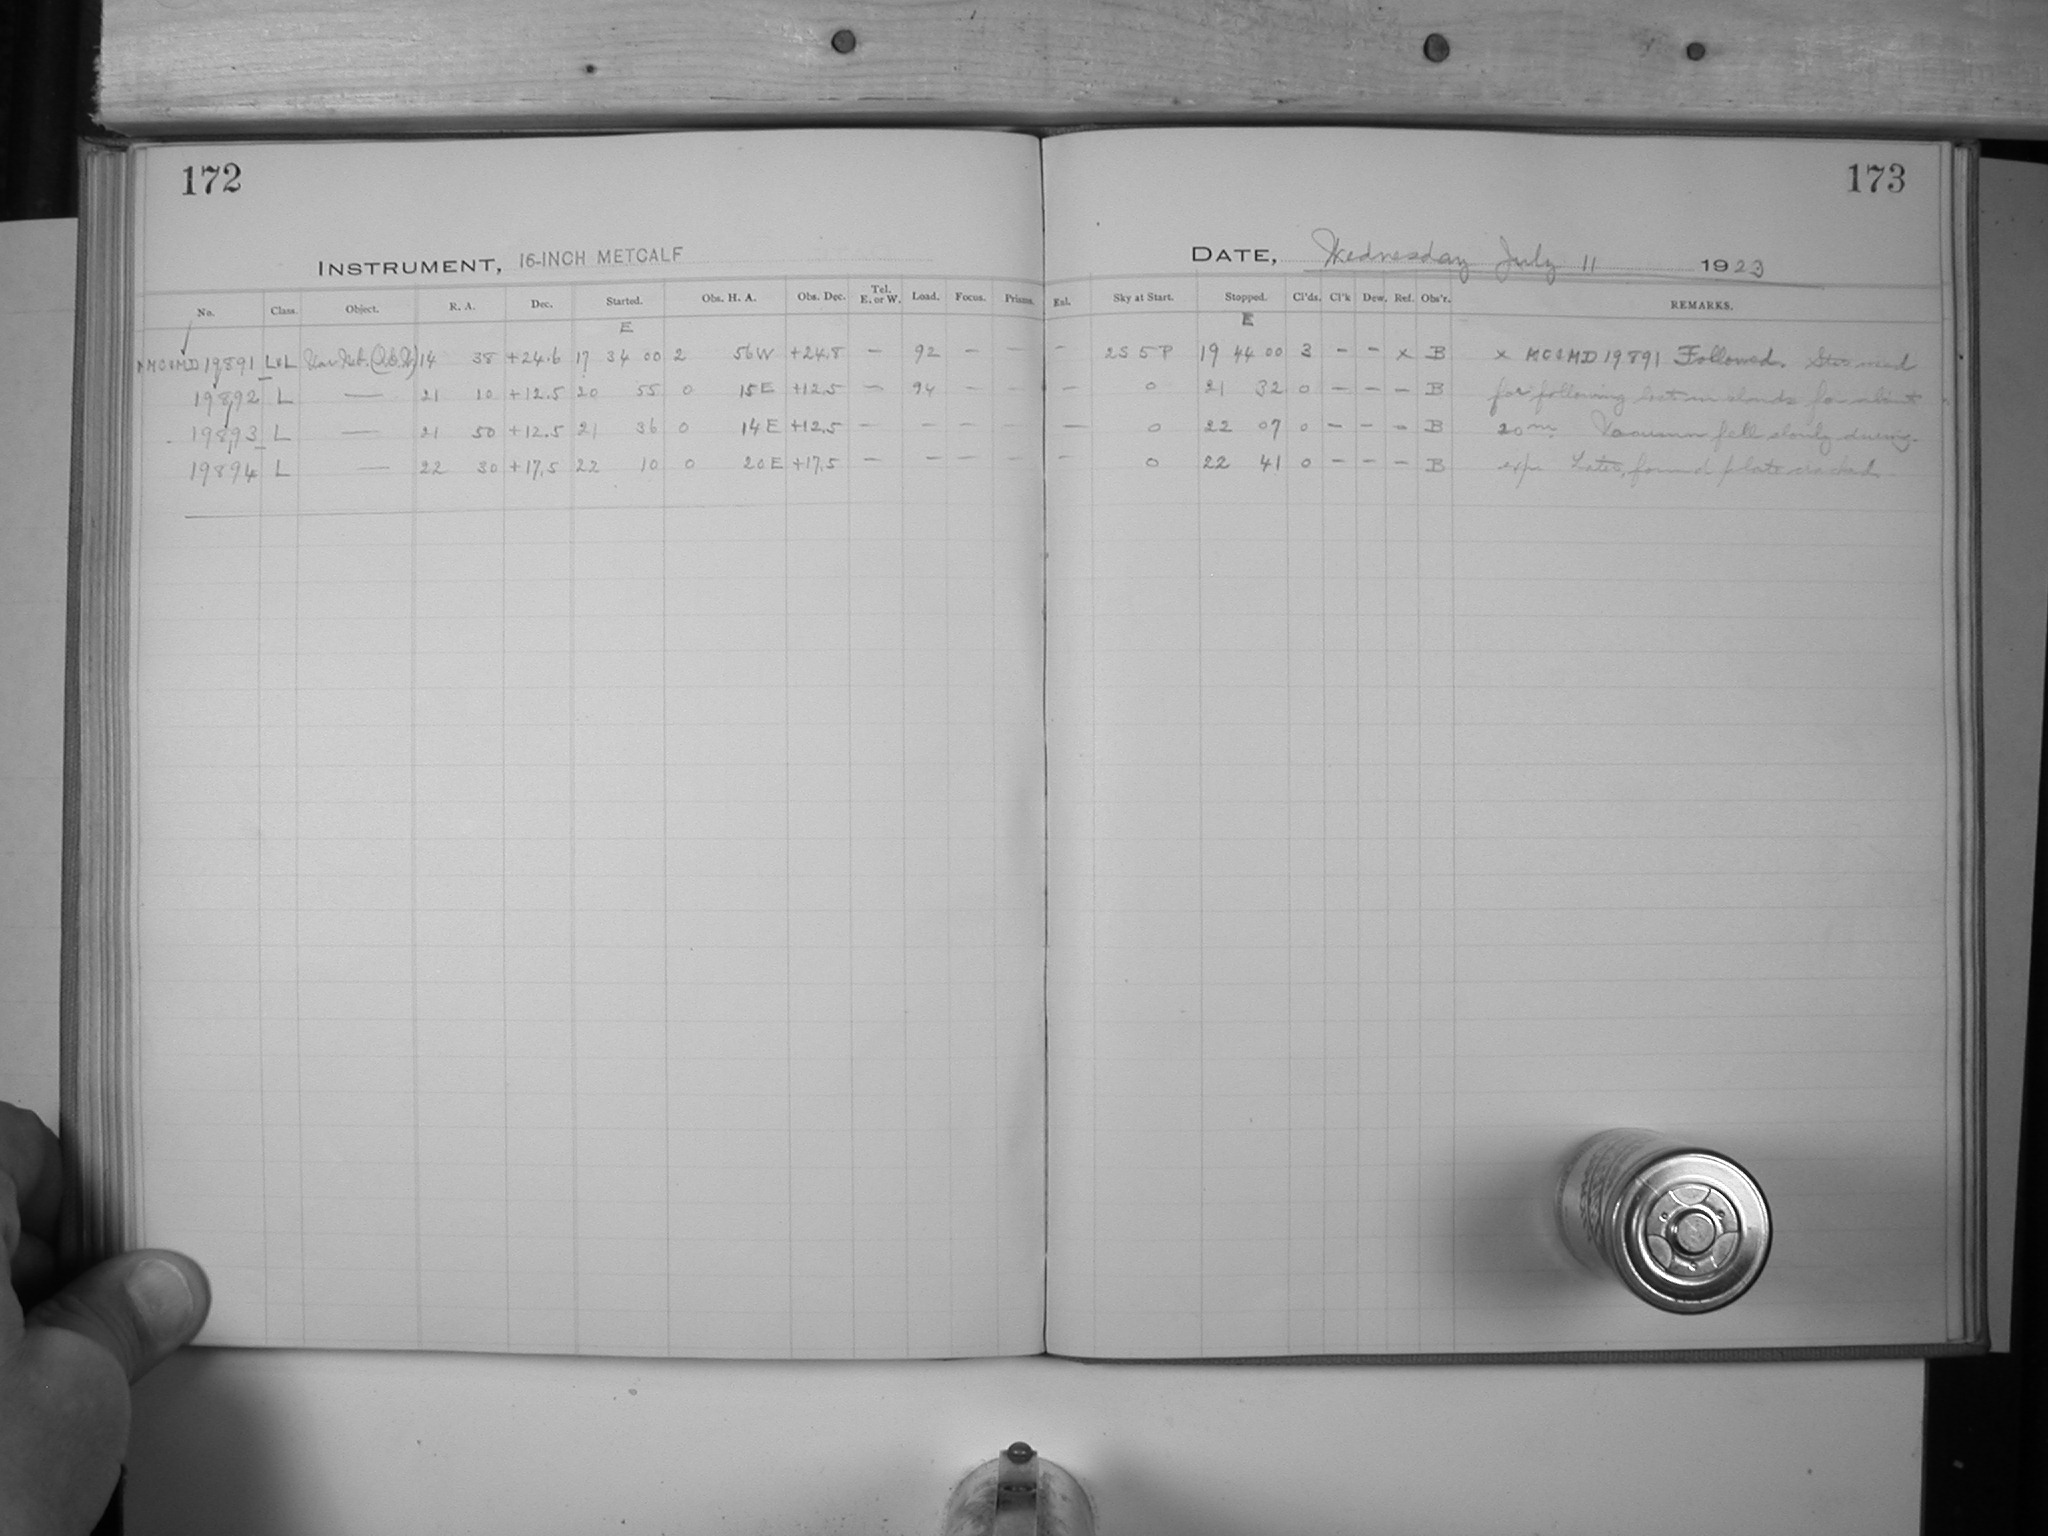 172
173
INSTRUMENT, 16-INCH METCALF
DATE, Wednesday July 11 1923
No. Class. Object. R. A. Dec. Started. Obs. H. A. Obs. Dec. Tel. E. or W. Load. Focus. Prisms. Exl. Sky at Start. Stopped. Cl'ds. Cl'k Dew. Ref. Obs'r. REMARKS.
E E
MC&MD 19891 L&L 14 38 +24.6 17 34 00 2 56 W +24.8 — 92 — — — 2S 5P 19 44 00 3 — — x B x MC&MD 19891 Followed. Star used
19892 L — 21 10 +12.5 20 55 0 15 E +12.5 — 94 — — — 0 21 32 0 — — — B for following lost in clouds for about
19893 L — 21 50 +12.5 21 36 0 14 E +12.5 — — — — — 0 22 07 0 — — — B 20m. Vacuum fell slowly during
19894 L — 22 30 +17.5 22 10 0 20 E +17.5 — — — — — 0 22 41 0 — — — B exp. Later, found plate cracked